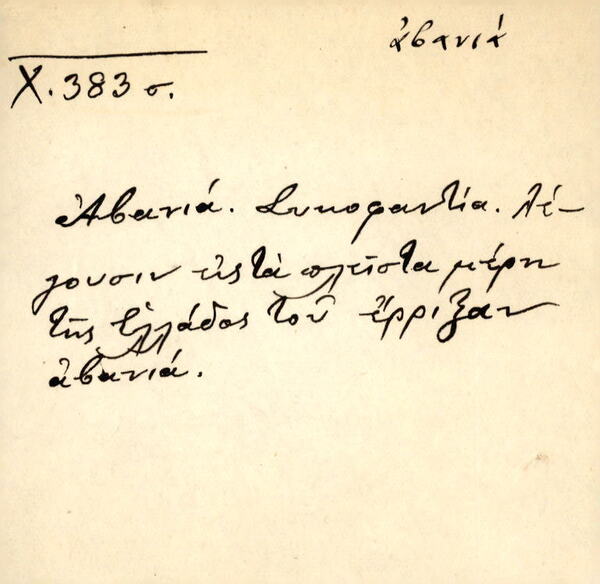 ἀβανιά
Χ. 383 σ.
Ἀβανιά. Συκοφαντία. λέ-
γουσιν εἰς τὰ πλεῖστα μέρη
τῆς Ἑλλάδος τοῦ ἔρριξαν
ἀβανιά.